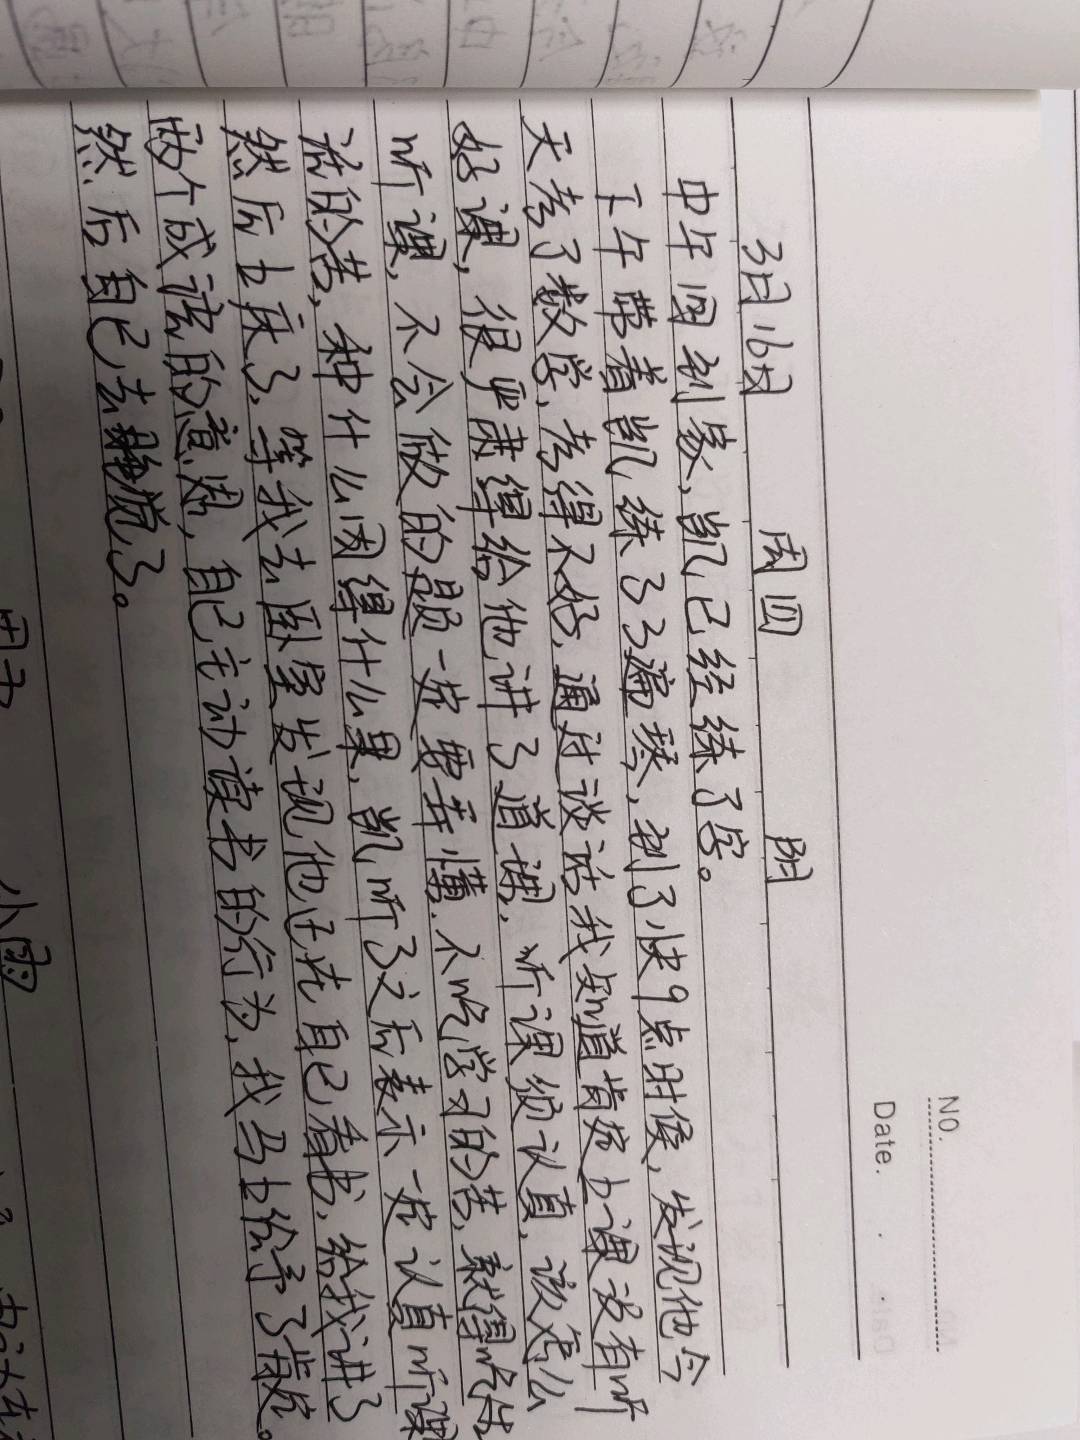 NO.
Date.
3月16日 周四 阴
中午回到家,凯已经练了字。
下午带着凯练了3遍琴,到了快9点时候,发现他今
天考了数学,考得不好,通过谈话我知道肯定上课没有听
好课,很严肃得给他讲了道理,听课须认真,该怎么
听课,不会做的题一定要弄懂,不吃学习的苦,就得吃生
活的苦,种什么因得什么果,凯听了之后表示一定认真听课
然后上床了,等我去卧室发现他正在自己看书,给我讲了
两个成语的意思,自己主动读书的行为,我马上给予了鼓励。
然后自己去睡觉了。
小雨